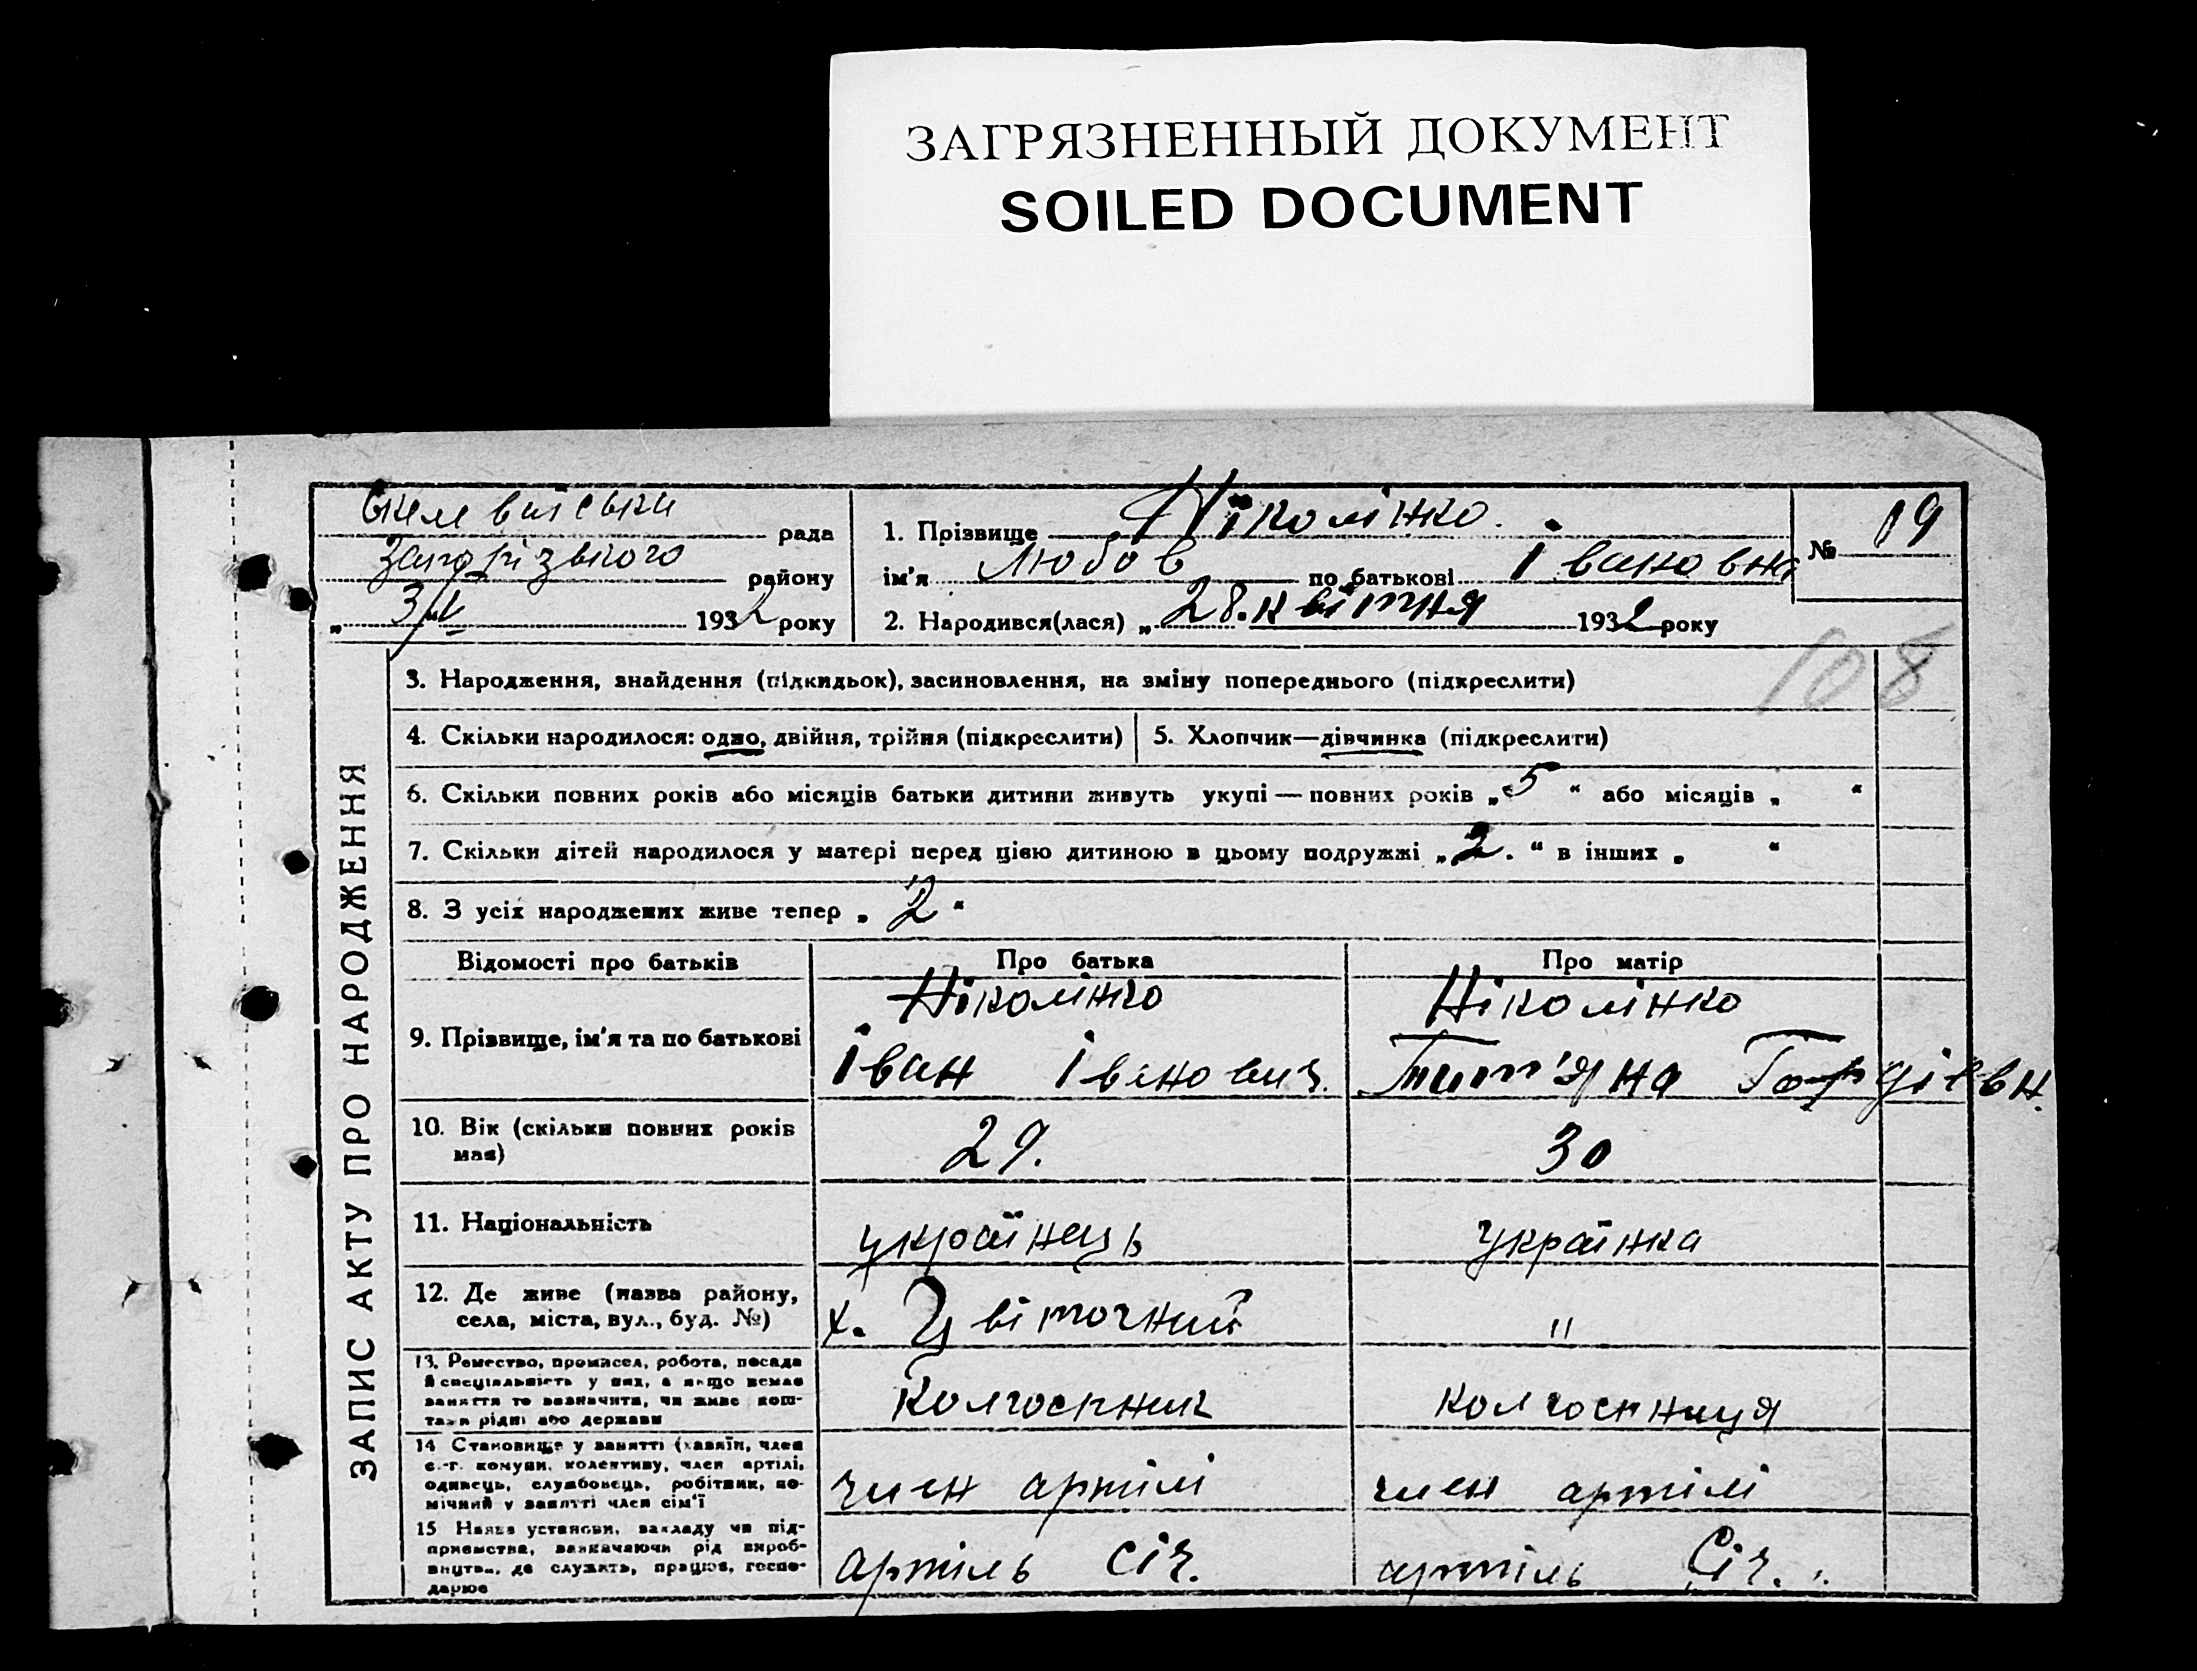 ЗАГРЯЗНЕННЫЙ ДОКУМЕНТ
SOILED DOCUMENT
рада
району
„ 3/V 1932 року
1. Прізвище Ніколінко.
ім'я Любов по батькові Івановна
2. Народився(лася) „ 28. квітня 1932 року
№ 19
108
ЗАПИС АКТУ ПРО НАРОДЖЕННЯ
3. Народження, знайдення (підкидьок), засиновлення, на зміну попереднього (підкреслити)
4. Скільки народилося: одно, двійня, трійня (підкреслити)
5. Хлопчик—дівчинка (підкреслити)
6. Скільки повних років або місяців батьки дитини живуть укупі — повних років „ 5 “ або місяців „ “
7. Скільки дітей народилося у матері перед цією дитиною в цьому подружжі „ 2. “ в інших „ “
8. З усіх народжених живе тепер „ 2 “
Відомості про батьків
Про батька
Про матір
9. Прізвище, ім'я та по батькові
Ніколінко
Іван Іванович.
Ніколінко
Тит'яна
10. Вік (скільки повних років
має)
29.
30
11. Національність
українець
українка
12. Де живе (назва району,
села, міста, вул., буд. №)
х. Цвіточний
"
13. Ремество, промисел, робота, посада
й спеціяльність у них, а якщо немає
заняття то зазначити, чи живе кош-
тами рідні або держави
Колгоспник
колгоспниця
14 Становище у занятті (хазяїн, член
с.-г. комуни, колективу, член артілі,
одинець, службовець, робітник, по-
мічний у занятті член сім'ї
член артілі
член артілі
15 Назва установи, закладу чи під-
приємства, зазначаючи рід вироб-
ництва, де служить, працює, госпо-
дарює
артіль Січ.
артіль Січ.